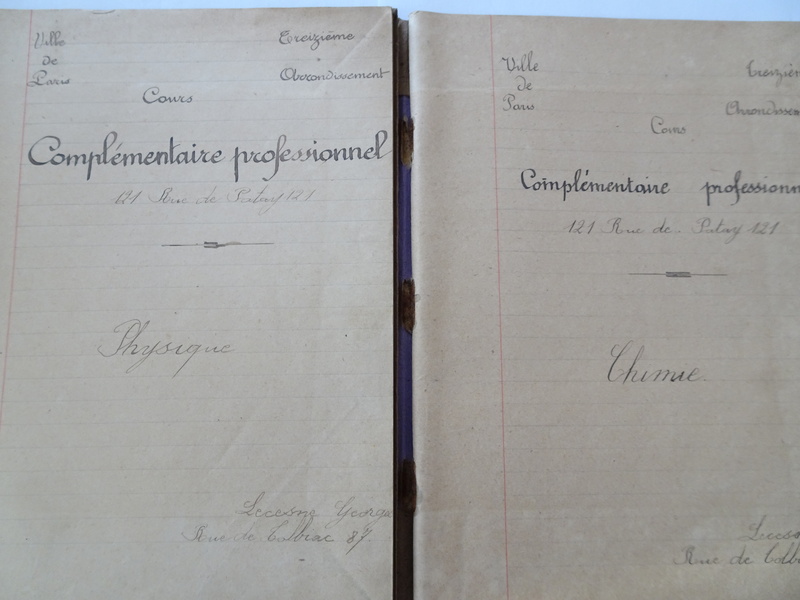 Ville
de
Paris
Treizième
Arrondissement
Cours
Complémentaire professionnel
121 Rue de Patay 121
Physique
Lecesne George
Rue de Tolbiac 87.
Ville
de
Paris
Treizièm
Arrondissem
Cours
Complémentaire professionn
121 Rue de Patay 121
Chimie.
Lecesn
Rue de Tolb